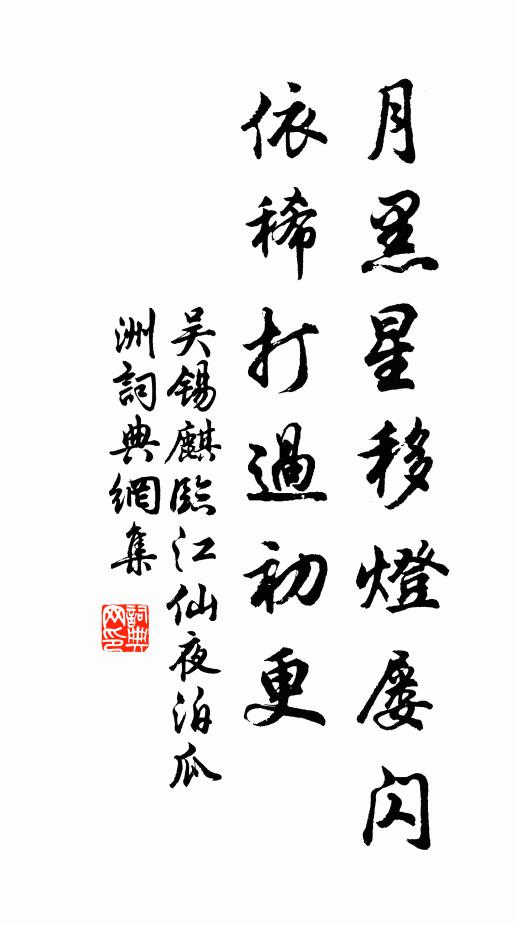 月黑星移燈屢閃
依稀打過初更
吴錫麒臨江仙夜泊瓜
洲詞典網集
詞典
网印